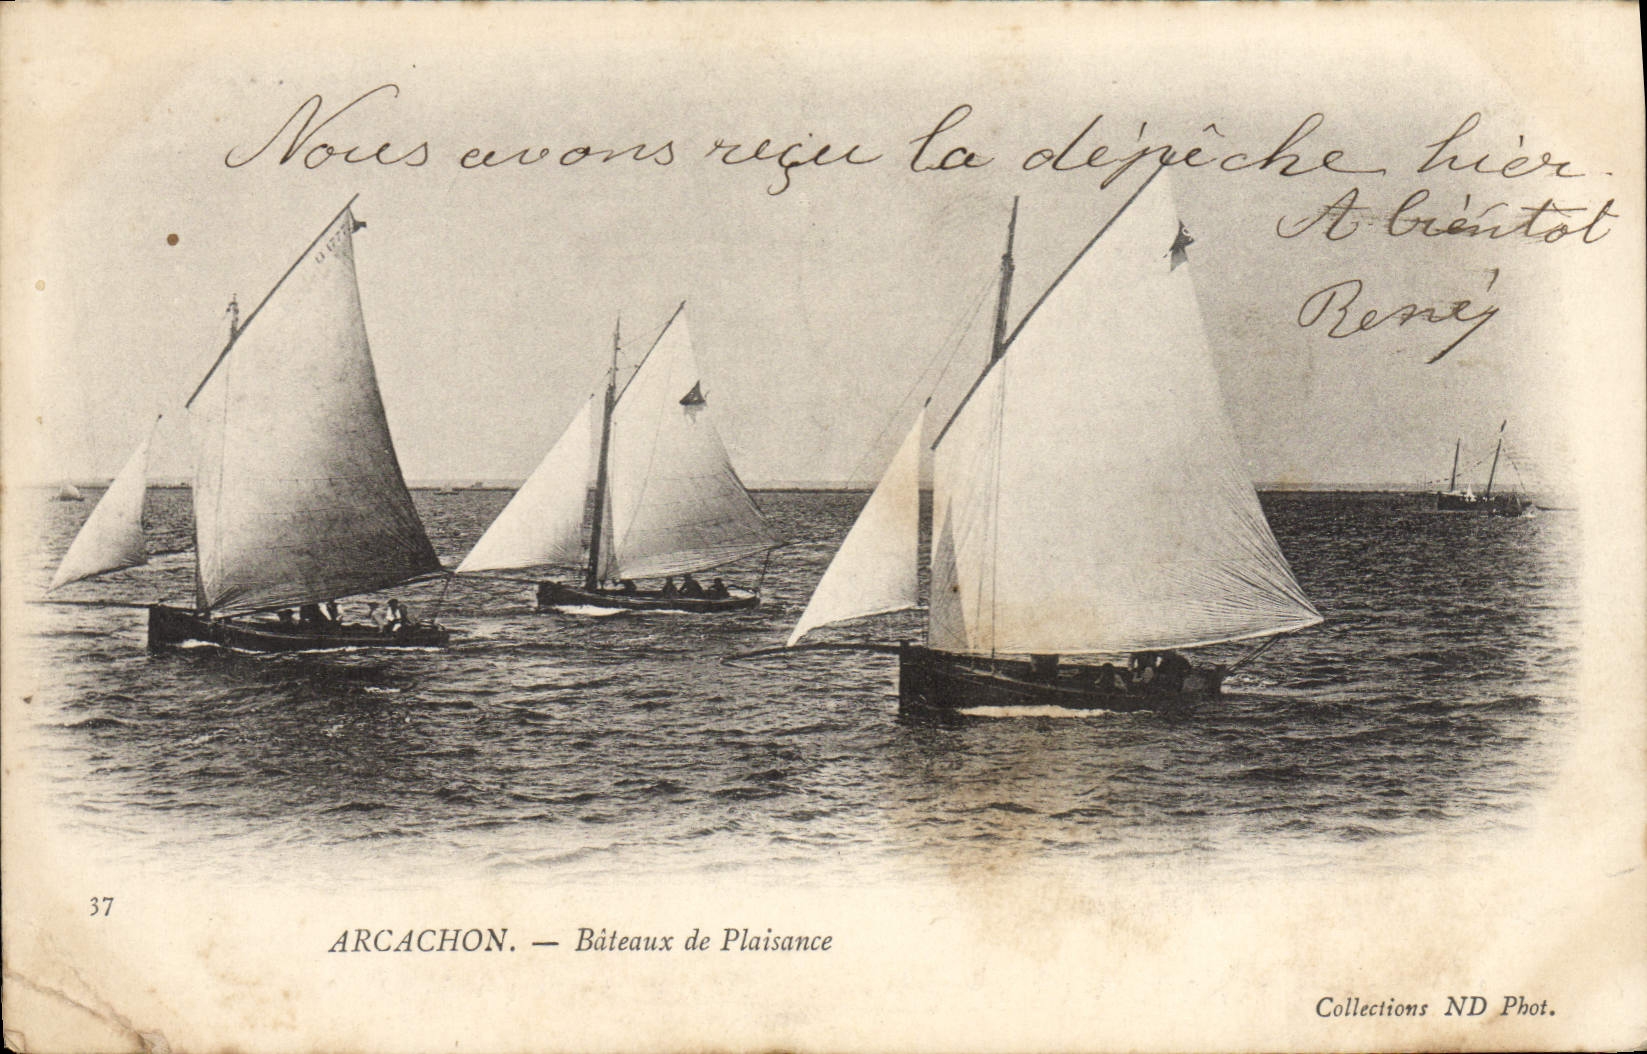 Nous avons reçu la dépêche hier.
A bientot
René
37
ARCACHON. — Bâteaux de Plaisance
Collections ND Phot.